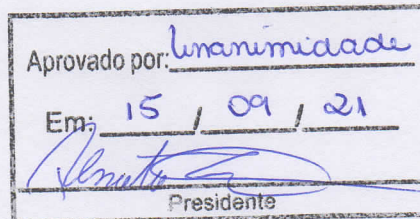 Aprovado por: Unanimidade
Em: 15 / 09 / 21
Presidente